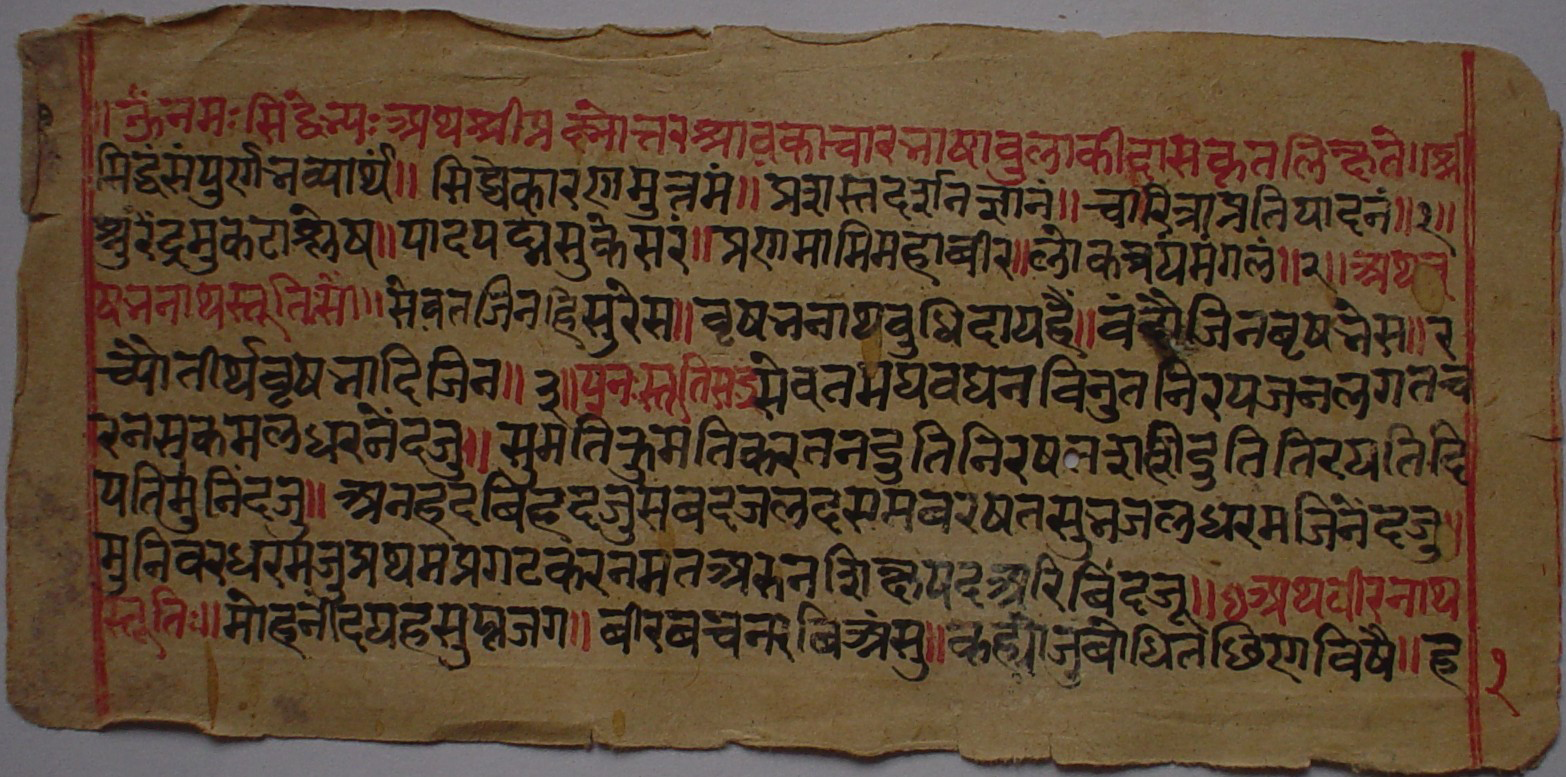 ॥ॐनमः सिद्धेभ्यः अथश्रीप्रश्नोत्तरश्रावकाचारभाषावुलाकीदासकृतलिख्यते॥श्लो
सिद्धंसंपुर्णभव्यार्थं॥ सिद्धेकारणमुत्तमं॥ प्रशस्तदर्शनज्ञानं॥ चारित्राप्रतिपादनं॥१॥
शुरेंद्रमुकटाश्लेष॥ पादपद्मसुकेसरं॥ प्रणमामिमहाबीर॥ लोकत्रयमंगलं॥२॥ अथवृ
षभनाथस्तूतिःसो॥ सेवतजिनहिसुरेस॥ वृषभनाथवुधिदायहैं॥ वंदौजिनबृषभेस॥ र
च्योतीर्थवृषभादिजिन॥३॥ पुनःस्तूतिसवै सेवतमघवघनविनुतनिरयजनलगतच
रनसुकमलधरनेंदजु॥ सुमतिकुमतिकरतनदुतिनिरषतशशीदुतितिरपतिदि
पतिमुनिंदजु॥ अनहदबिहदजुसबदजलदसमबरषतसुभजलधरमजिनेंदजु॥
मुनिवरधरमजुप्रथमप्रगटकरनमतअसनशिह्नपदअरिबिंदजू॥४ अथवीरनाथ
स्तूतिः॥ मोहनीदयहसुप्तजग॥ बीरबचनरबिअंसु॥ कह्योजुबोधितछिणविषै॥ ह
१